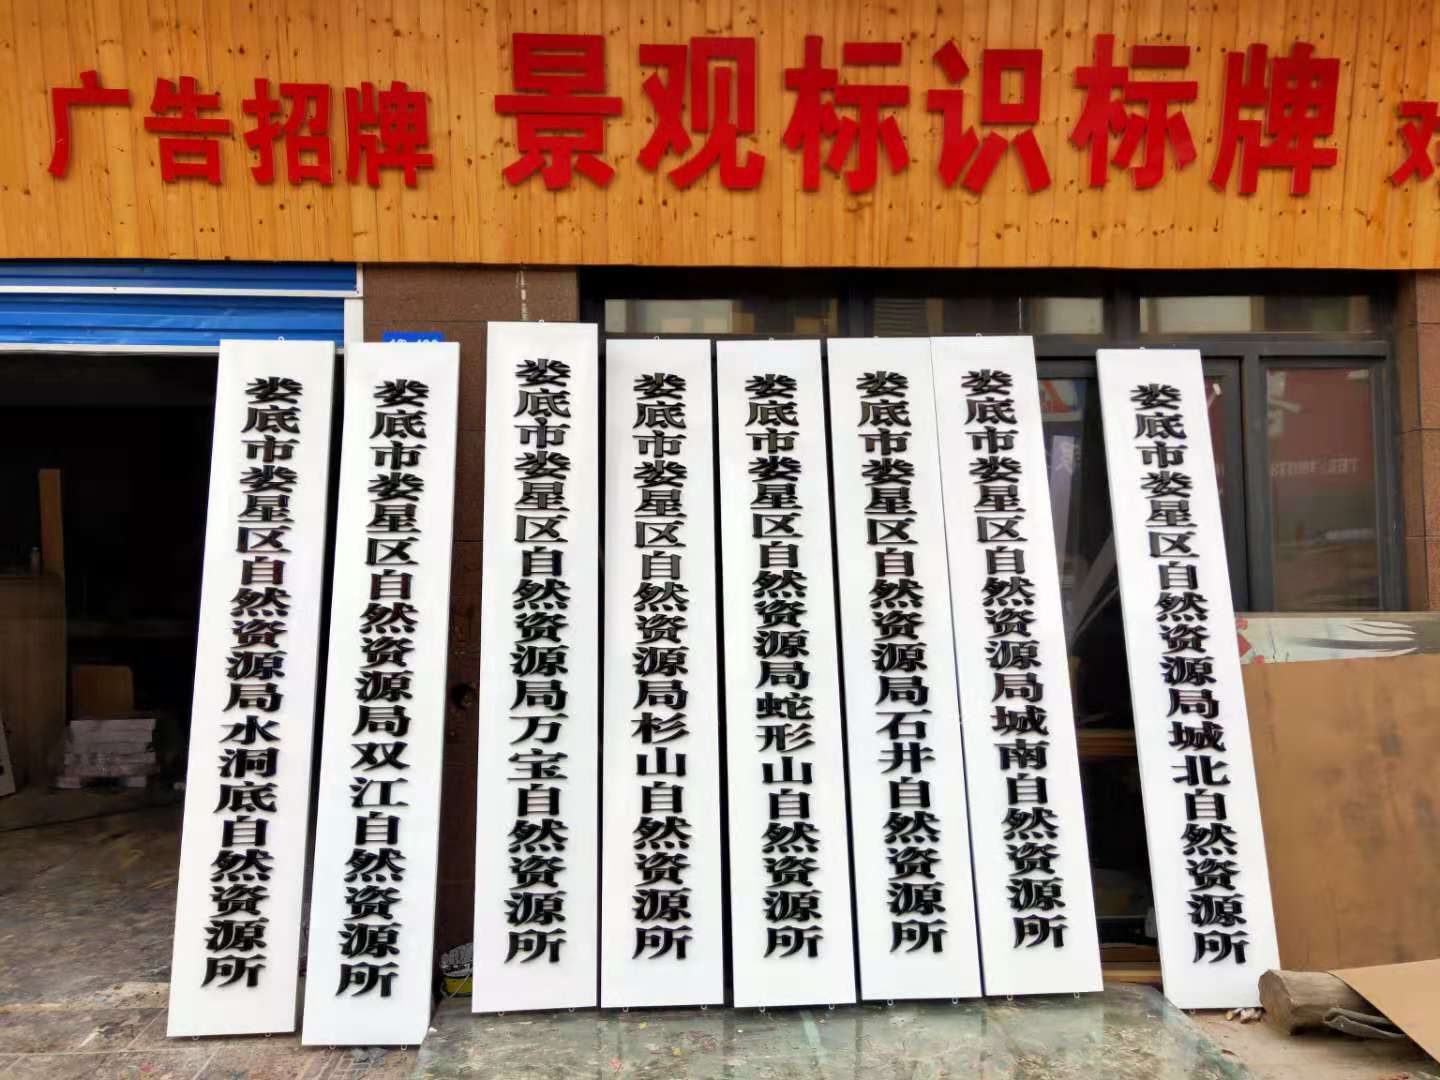 广告招牌 景观标识标牌
娄底市娄星区自然资源局水洞底自然资源所
娄底市娄星区自然资源局双江自然资源所
娄底市娄星区自然资源局万宝自然资源所
娄底市娄星区自然资源局杉山自然资源所
娄底市娄星区自然资源局蛇形山自然资源所
娄底市娄星区自然资源局石井自然资源所
娄底市娄星区自然资源局城南自然资源所
娄底市娄星区自然资源局城北自然资源所